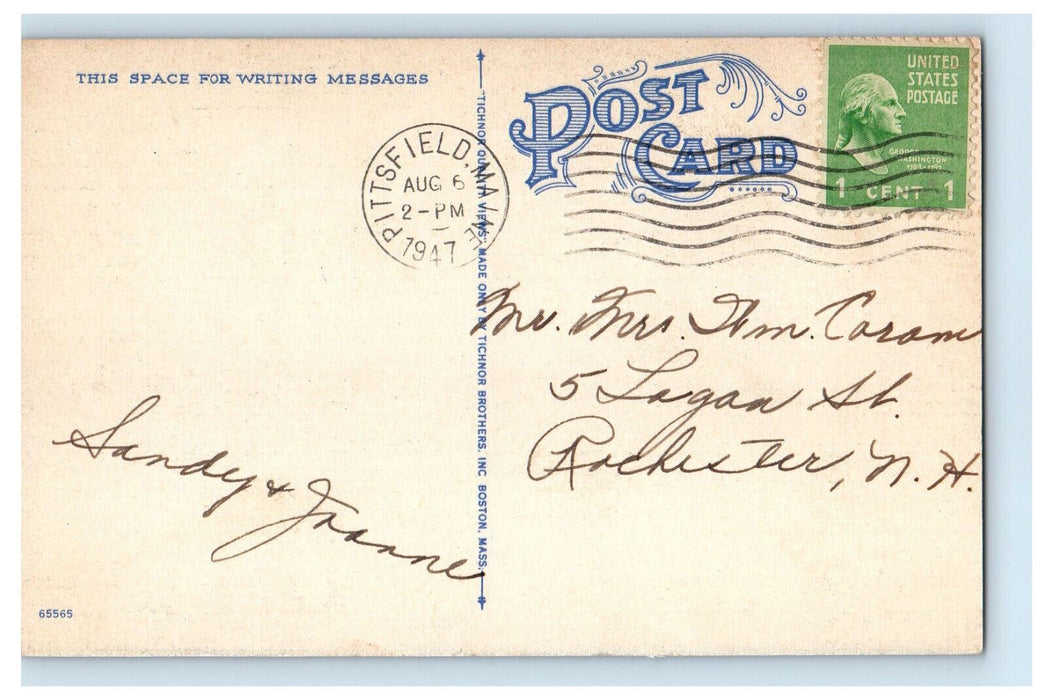 THIS SPACE FOR WRITING MESSAGES
POST
CARD
UNITED
STATES
POSTAGE
GEORGE
WASHINGTON
1789-1797
1 CENT 1
PITTSFIELD, MAINE
AUG 6
2-PM
1947
"TICHNOR QUALITY VIEWS," MADE ONLY BY TICHNOR BROTHERS, INC BOSTON, MASS.
Mr. Mrs. Wm. Caram
5 Logan St.
Rochester, N.H.
Sandy & Joanne
65565